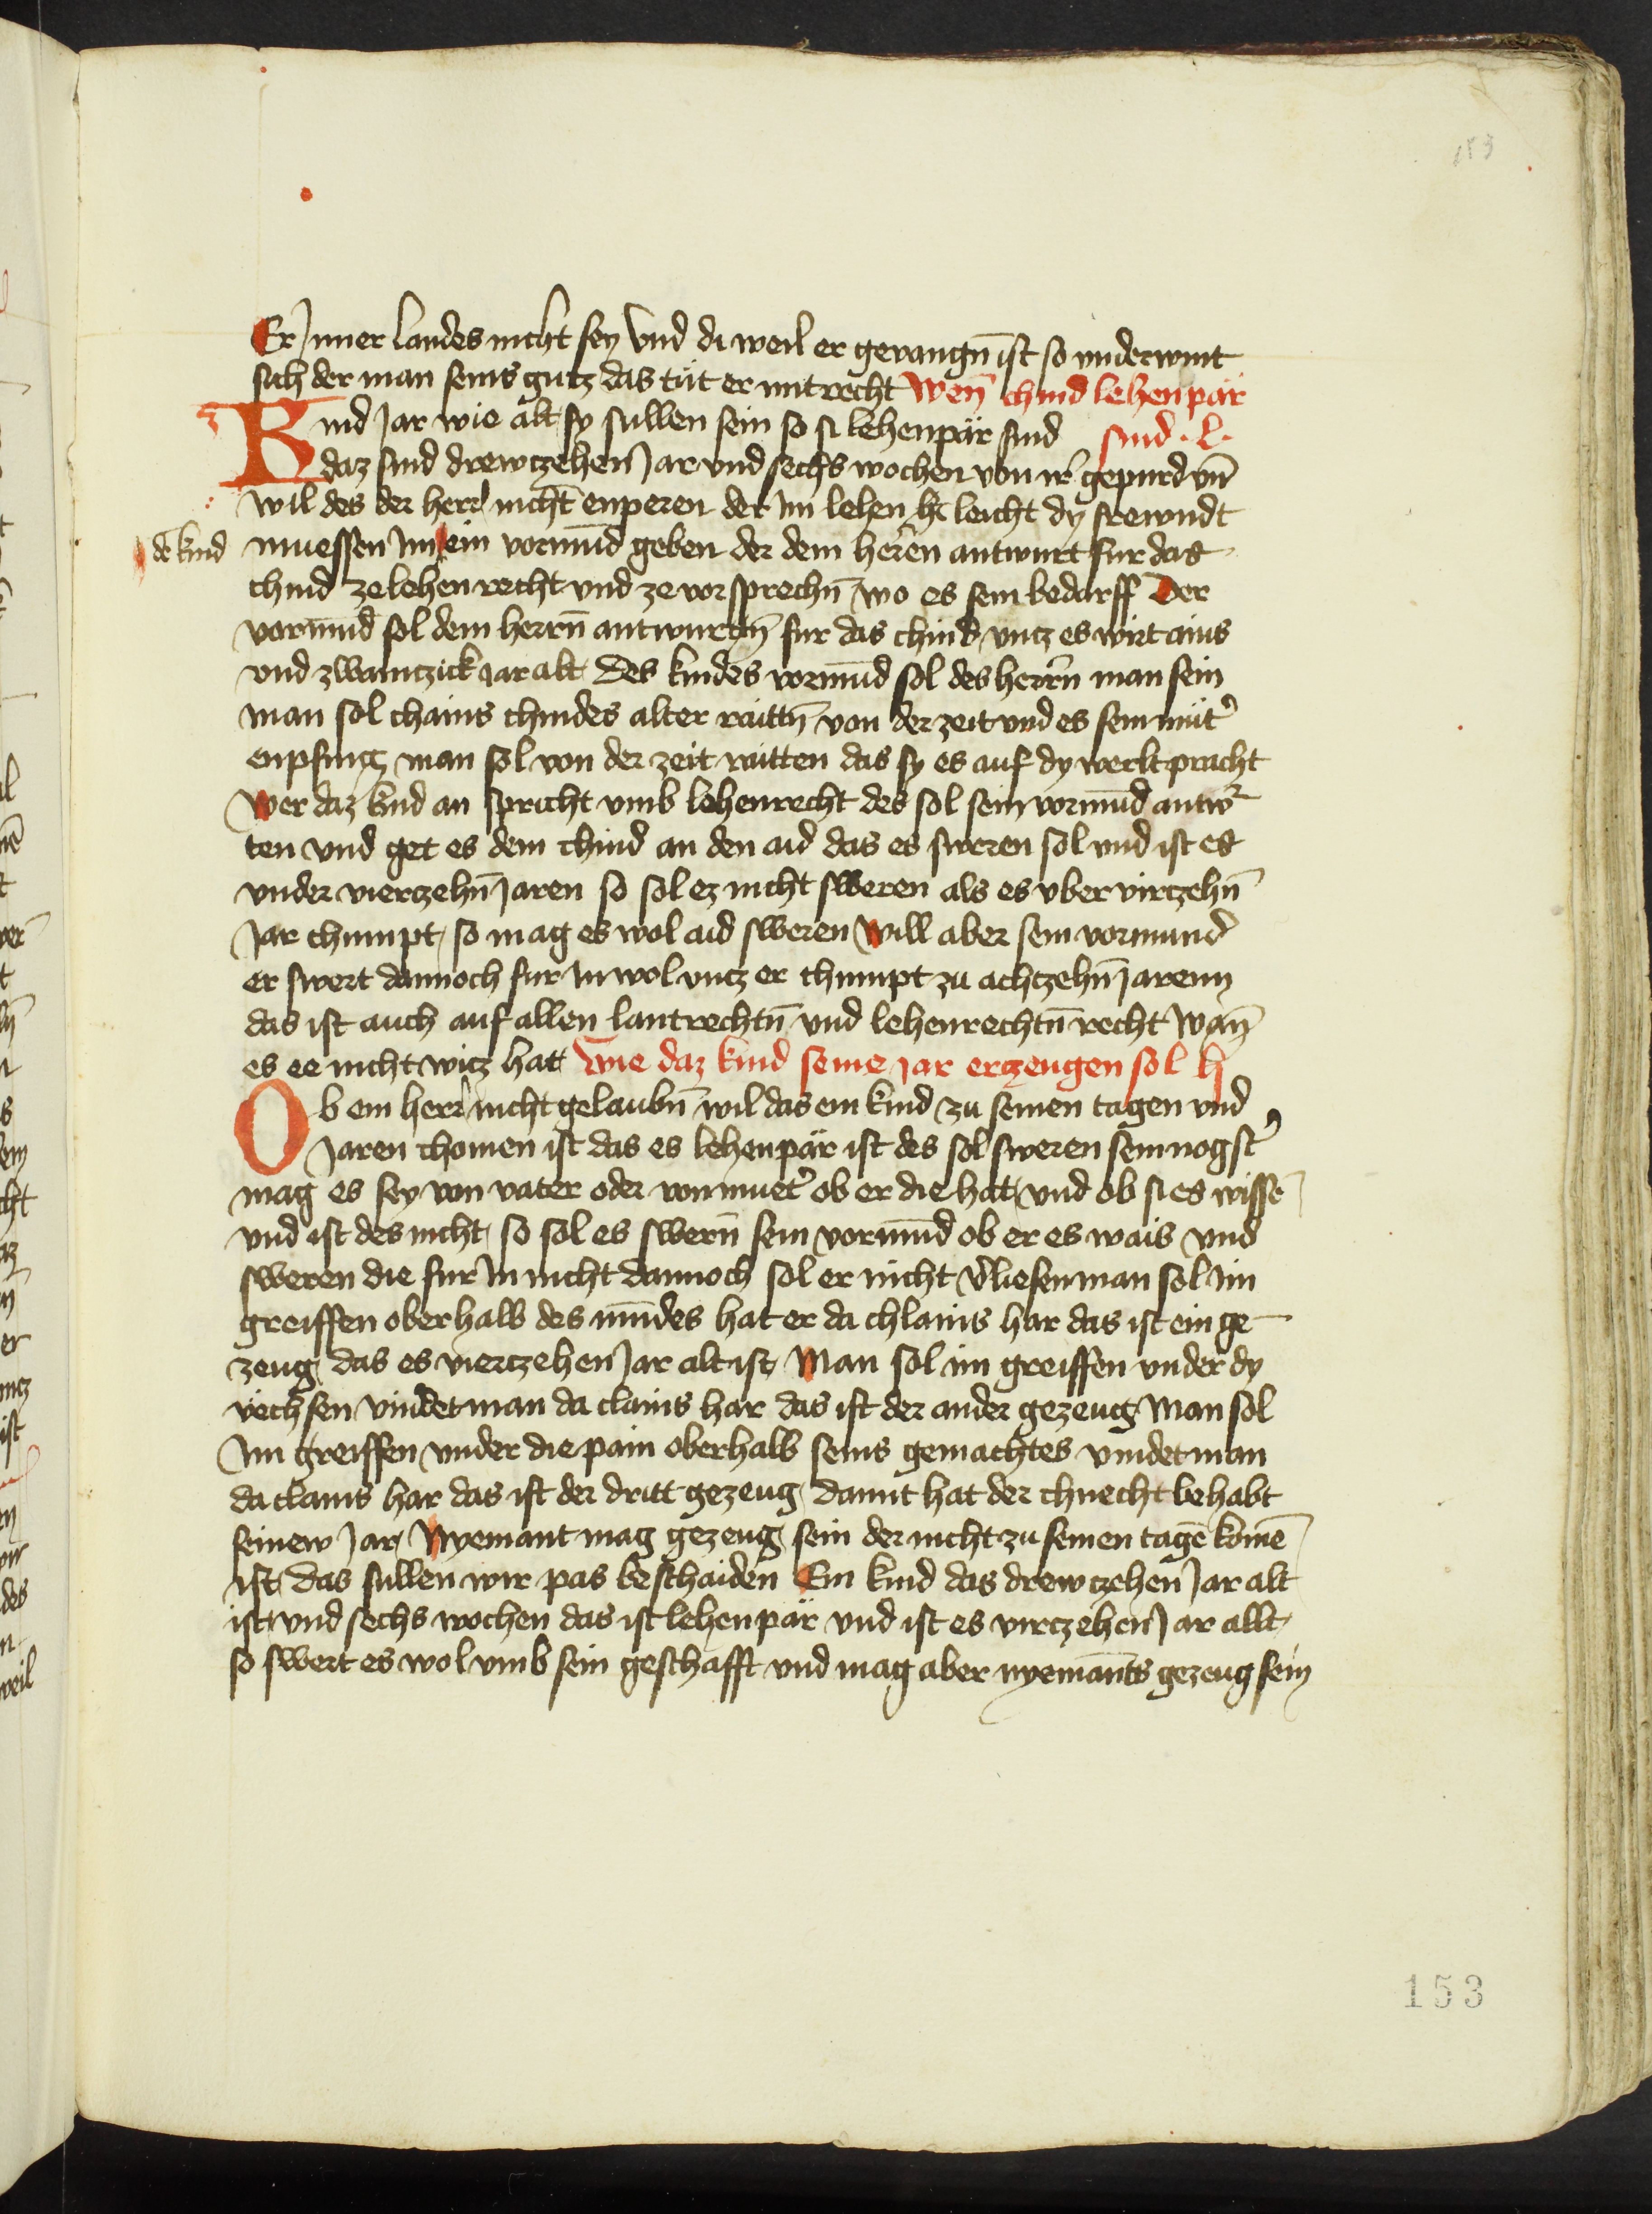 153
Er Inner landes nicht sey Vnd di weil er gevangn̄ ist so vnderwint
sich der man seins gutz das tüt er mit recht Wen̄ chind lehenpär
Kind Jar wie alt sy sullen sein so si lehenpär sind sind · l ·
daz sind drewczehen Jar vnd sechs wochen von ir gepurd vn̄
wil des der herr nicht enperen der Im lehen leicht dy frewndt
de kind muessen Im ein vormūd geben der dem herren antwurt fur das
chind ze lehenrecht vnd ze vorsprechn̄ wo es sein bedarff Der
vormūd sol dem herrn̄ antwurtn̄ fur das chind vntz es wirt ains
vnd zwaintzick Jar alt Des kindes vormūd sol des herrn̄ man sein
man sol chains chindes alter raittn̄ von der zeit vnd es sein müt̄
enpfing man sol von der zeit raitten das sy es auf dy werlt pracht
Wer daz kind an spricht vmb lehenrecht des sol sein vormūd antw̄
ten vnd get es dem chind an den aid das es sweren sol vnd ist es
vnder vierczehn̄ Jaren so sol ez nicht sweren als es vber virczehn̄
Jar chumpt so mag es wol aid sweren Will aber sein vormund
er swert dannoch fur In wol vntz er chumpt zu achtzehn̄ Jarenn
das ist auch auf allen lantrechtn̄ vnd lehenrechtn̄ recht wan̄
es ee nicht witz hat Wie daz kind seine Jar erzeugen sol li
Ob ein herr nicht gelaubn̄ wil das ein kind zu seinen tagen vnd
Jaren chomen ist das es lehenpär ist des sol sweren sein nogst̄
mag es sey von vater oder von muet̄ ob er die hat vnd ob si es wissē
vnd ist des nicht so sol es swern̄ sein vormūd ob er es wais vnd
sweren die fur In nicht dannoch sol er nicht v̄liesen man sol Im
greiffen oberhalb des mūdes hat er da chlains har das ist ein ge-
zeug das es vierczehen Jar alt ist Man sol im greiffen vnder dy
vechsen vindet man da clains har das ist der ander gezeug Man sol
Im greiffen vnder die pain oberhalb seins gemachtes vindet man
da clains har das ist der dritt gezeug damit hat der chnecht behabt
seinew Jar Nyemant mag gezeug sein der nicht zu seinen tagē komē
ist das sullen wir pas beschaiden Ein kind das drewczehen Jar alt
ist vnd sechs wochen das ist lehenpär vnd ist es virczehen Jar allt
so swert es wol vmb sein geschafft vnd mag aber nyemants gezeug sein
153